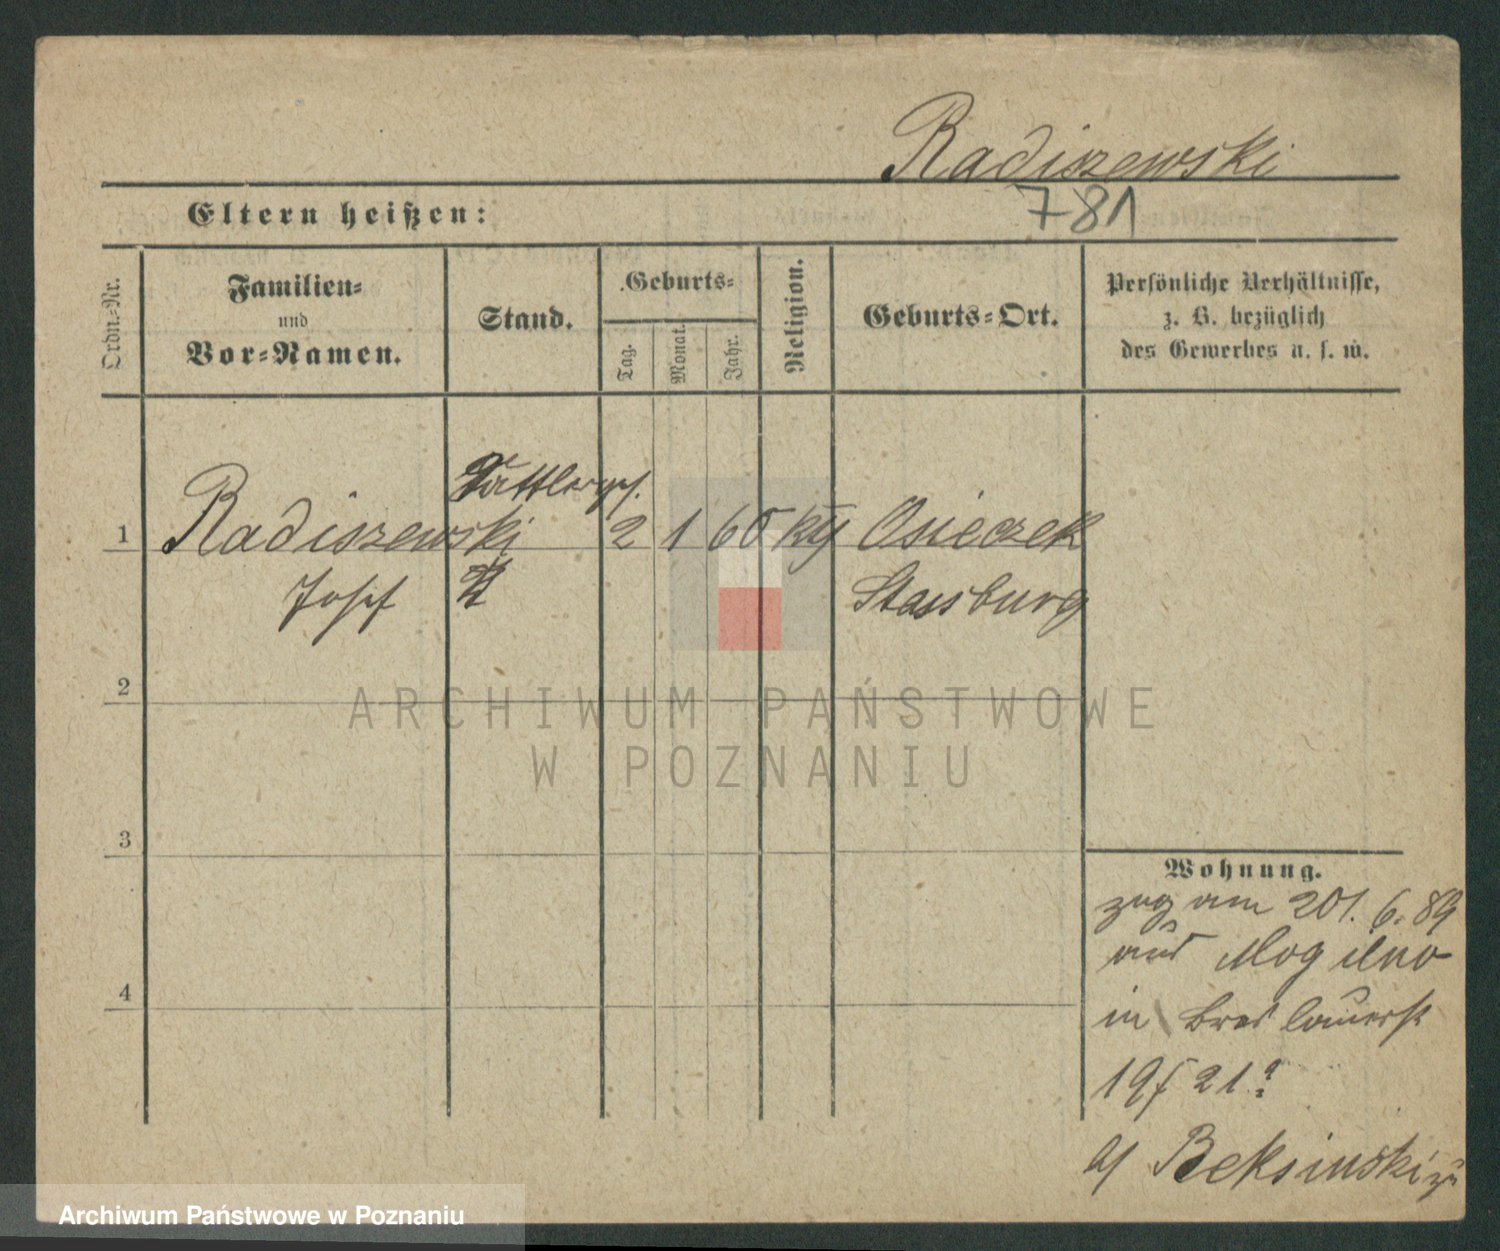 Radiszewski
781
Eltern heißen:
Ordn.-Nr.
Familien-
und
Vor-Namen.
Stand.
Geburts-
Tag.
Monat.
Jahr.
Religion.
Geburts-Ort.
Persönliche Verhältnisse,
z. B. bezüglich
des Gewerbes u. s. w.
Sattlerges.
1 Radiszewski 2 1 60 kth Osieczek
Josef Strasburg
2
3
4
Wohnung.
zug am 6. 89
aus Mogilno
in Breslauerstr
19/21
b/ Beksinski
ARCHIWUM PAŃSTWOWE
W POZNANIU
Archiwum Państwowe w Poznaniu